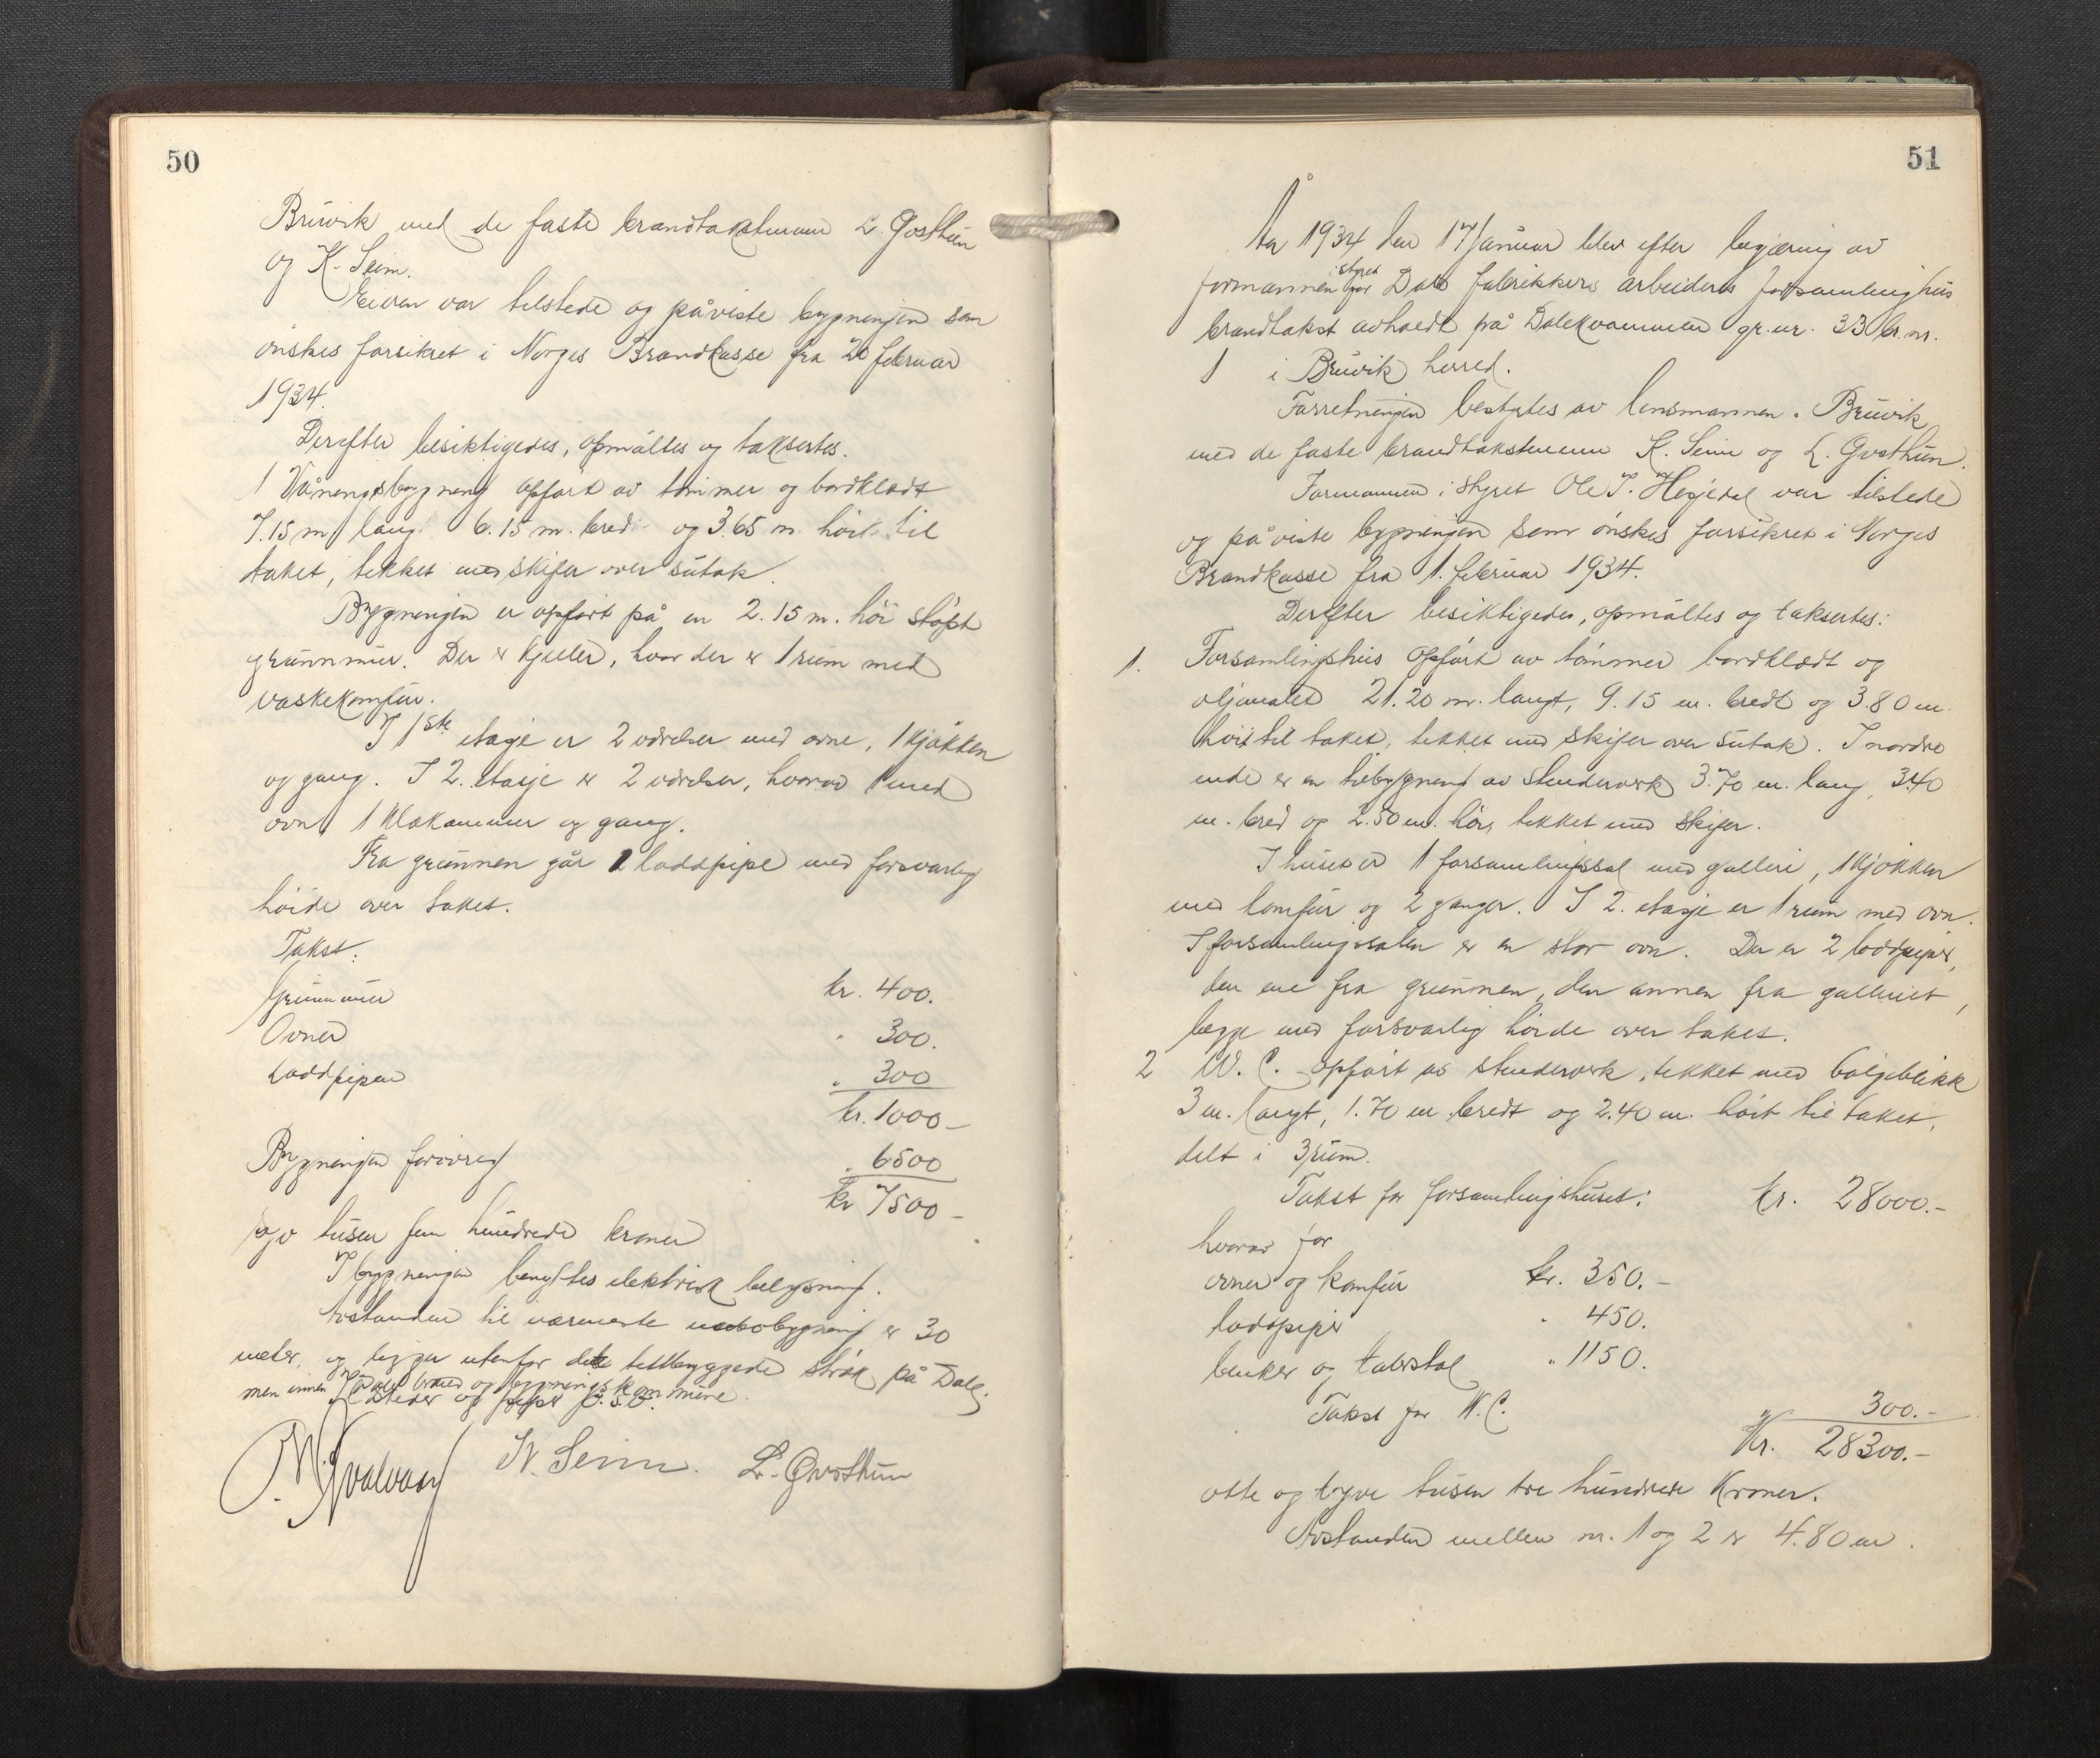 50
Bruvik med de faste brandtakstmenn L. Gosthun
og K. Seim.
Eieren var tilstede og påviste bygningen som
ønskes forsikret i Norges Brandkasse fra 20 februar
1934.
Derefter besiktigedes, opmåltes og taksertes.
1 Våningsbygning opført av tømmer og bordklædt
7.15 m lang 6.15 m. bred og 3.65 m. høi til
taket, tekket med skifer over sutak.
Bygningen er opført på en 2.15 m. høi støpt
grunnmur. Der er kjeller, hvor der er 1 rum med
vaskekomfur.
I 1ste etasje er 2 værelser med ovne, 1 kjøkken
og gang. I 2. etasje er 2 værelser, hvorav 1 med
ovn 1 klækammer og gang.
Fra grunnen går 1 loddpipe med forsvarlig
høide over taket.
Takst:
Grunnmur kr. 400.
Ovner " 300.
Loddpipen " 300
kr. 1000 –
Bygningen forøvrig " 6500
kr 7500 –
syv tusen fem hundrede kroner
I bygningen benyttes elektrisk belysning.
Avstanden til nærmeste nabobygning er 30
meter, og ligger utenfor det tettbyggede strøk på Dale,
men innen Dale brand og bygningskommune.
K. Seim. L. Gosthun
51
År 1934 den 17 januar blev efter begjæring av
formannen i styret for Dale fabrikkers arbeideres forsamlinghus
brandtakst avholdt på Dalekvammen gr.nr. 33 br.nr.
1 i Bruvik herred.
Forretningen bestyrtes av lensmannen i Bruvik
med de faste brandtakstmenn K. Seim og L. Gosthun.
Formannen i styret Ole J. Hesjedal var tilstede
og påviste bygningen som ønskes forsikret i Norges
Brandkasse fra 1. februar 1934.
Derefter besiktigedes, opmåltes og taksertes:
1. Forsamlingshus opført av tømmer bordklædt og
oljemalt 21.20 m. langt, 9.15 m. bredt og 3.80 m.
høit til taket, tekket med skifer over sutak. I nordre
ende er en tilbygning av stenderverk 3.70 m. lang, 3.40
m. bred og 2.50 m. høi, tekket med skifer.
I huset er 1 forsamlingssal med galleri, 1 kjøkken
med komfur og 2 ganger. I 2. etasje er 1 rum med ovn.
I forsamlingssalen er en stor ovn. Der er 2 loddpiper,
den ene fra grunnen, den annen fra galleriet,
begge med forsvarlig høide over taket.
2 W. C. opført av stenderverk, tekket med bølgeblikk
3 m. langt, 1.70 m bredt og 2.40 m. høit til taket,
delt i 3 rum.
Takst for forsamlingshuset: kr. 28000.–
hvorav for
ovner og komfur kr. 350.–
loddpiper " 450.
benker og talerstol " 1150.
Takst for W.C. " 300.–
Kr. 28300.–
otte og tyve tusen tre hundrede Kroner.
Avstanden mellem nr. 1 og 2 er 4.80 m.